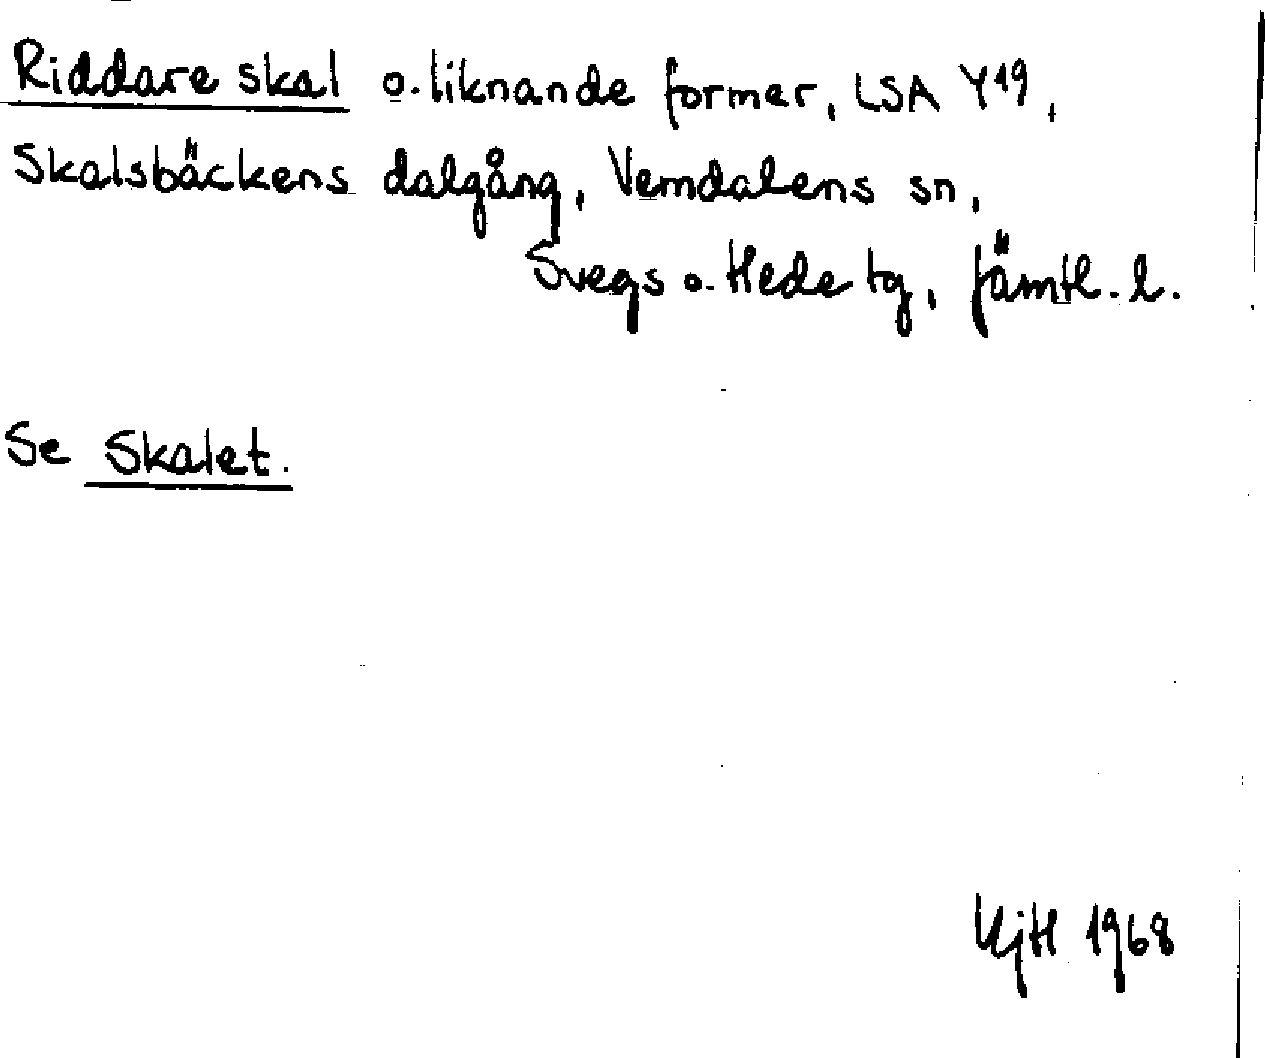 Riddare skal o. liknande former, LSA Y19,
Skalsbäckens dalgång, Vemdalens sn,
Svegs o. Hede tg, Jämtl. l.
Se Skalet.
1968